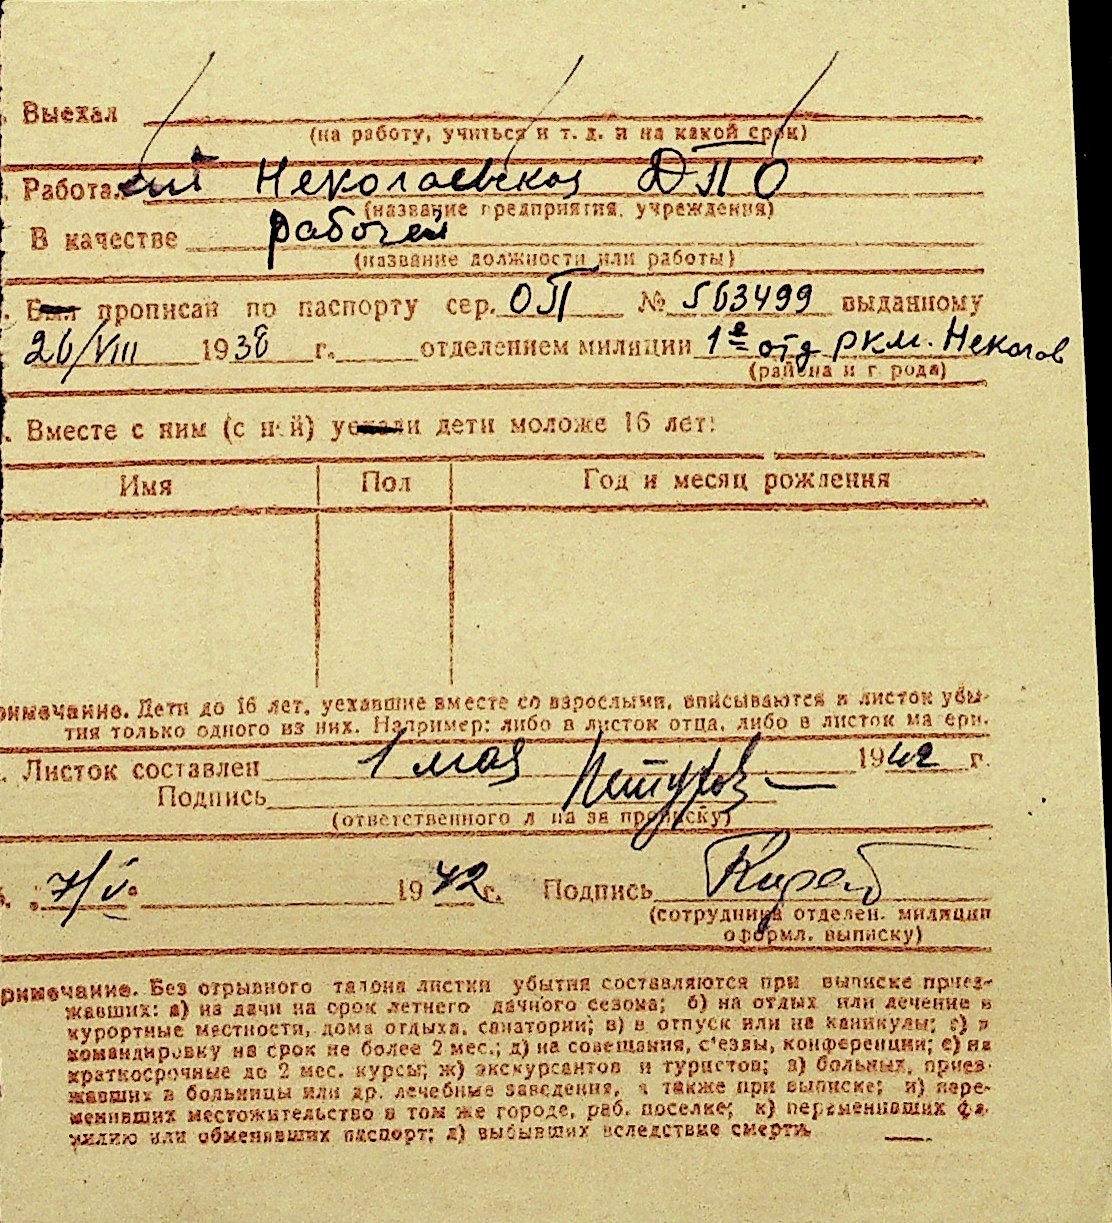 Выехал
(на работу, учиться и т. д. и на какой срок)
Работа Николаевская ДПО
(название предприятия, учреждения)
В качестве рабочей
(название должности или работы)
Был прописан по паспорту сер. ОП № 563499 выданному
26/VIII 1938 г. отделением милиции 1е отд РКМ. Николаев
(района и города)
Вместе с ним (с ней) уехали дети моложе 16 лет:
Имя Пол Год и месяц рождения
римечание. Дети до 16 лет, уехавшие вместе со взрослыми, вписываются в листок убы-
тия только одного из них. Например: либо в листок отца, либо в листок матери.
Листок составлен 1 мая 1942 г.
Подпись
(ответственного лица за прописку)
7/V 1942 г. Подпись
(сотрудника отделен. милиции
оформл. выписку)
римечание. Без отрывного талона листки убытия составляются при выписке приез-
жавших: а) из дачи на срок летнего дачного сезона; б) на отдых или лечение в
курортные местности, дома отдыха, санатории; в) в отпуск или на каникулы; г) в
командировку на срок не более 2 мес.; д) на совещания, с'езды, конференции; е) на
краткосрочные до 2 мес. курсы; ж) экскурсантов и туристов; з) больных, приез-
жавших в больницы или др. лечебные заведения, а также при выписке; и) пере-
менивших местожительство в том же городе, раб. поселке; к) переменивших фа-
милию или обменявших паспорт; л) выбывших вследствие смерти.